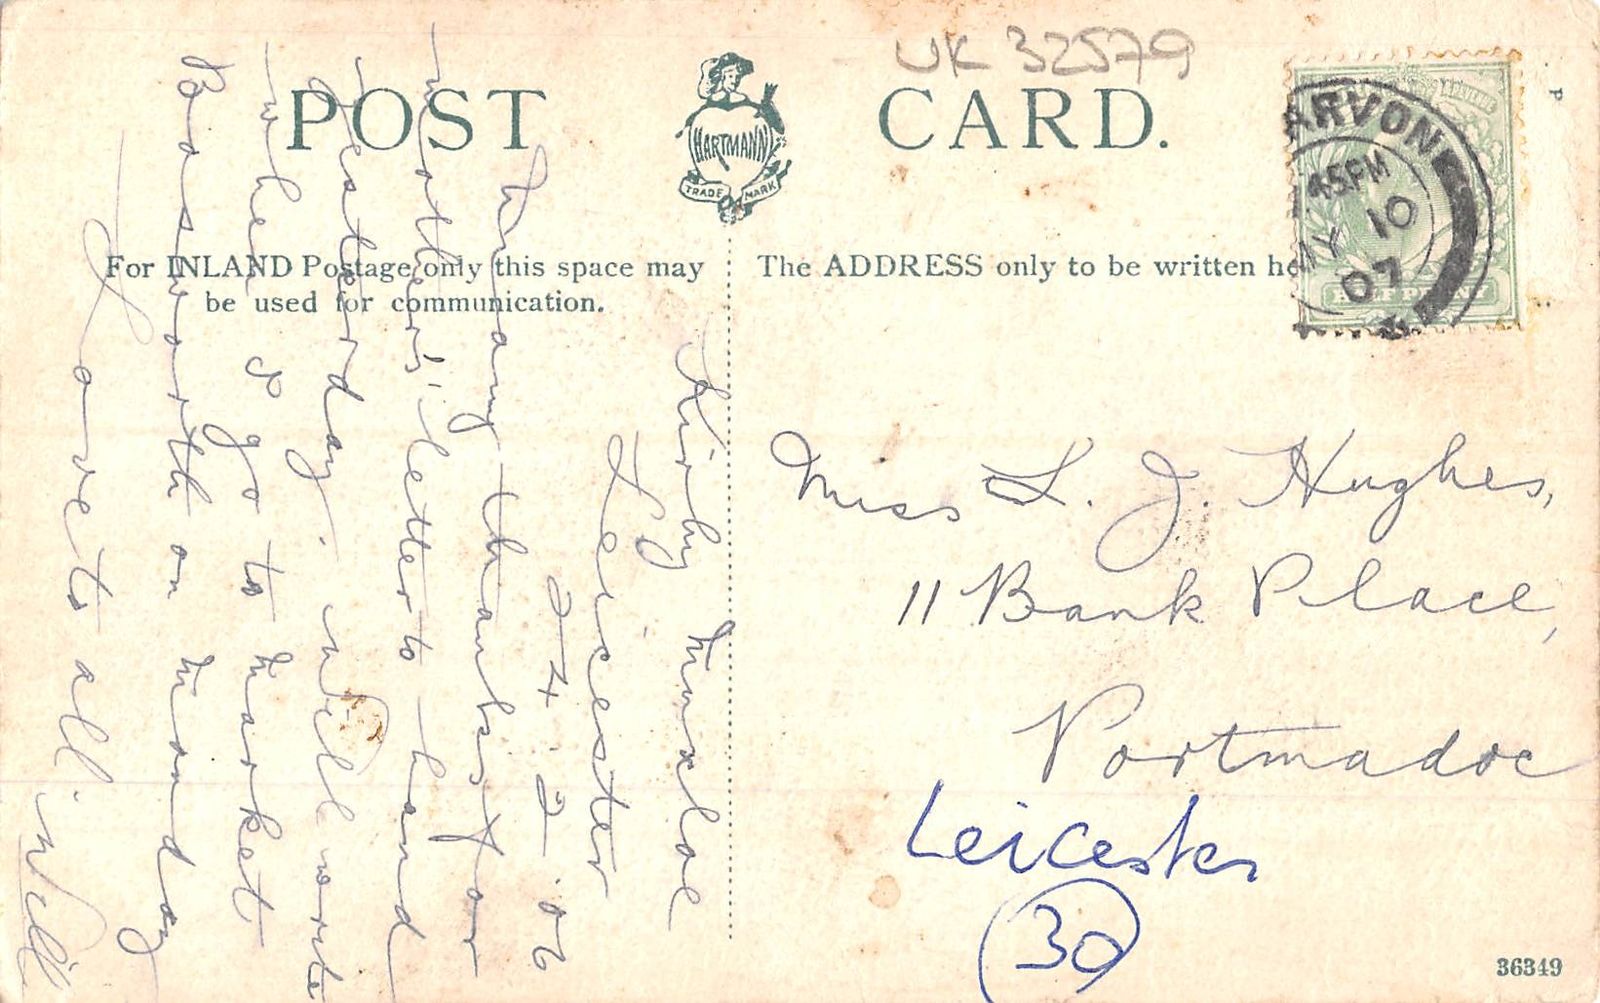 UK 32579
POST CARD.
HARTMANN
TRADE MARK
For INLAND Postage only this space may
be used for communication.
The ADDRESS only to be written he
ARVON
45PM
MY 10
07
HALF PENNY
Kirby Muxloe
Leicester
24.2.06
Many thanks for
mother's letter to hand
yesterday. Will write
when I go to Market
Bosworth on Monday
Love to all. Will
Miss L. J. Hughes,
11 Bank Place,
Portmadoc
Leicester
30
36349